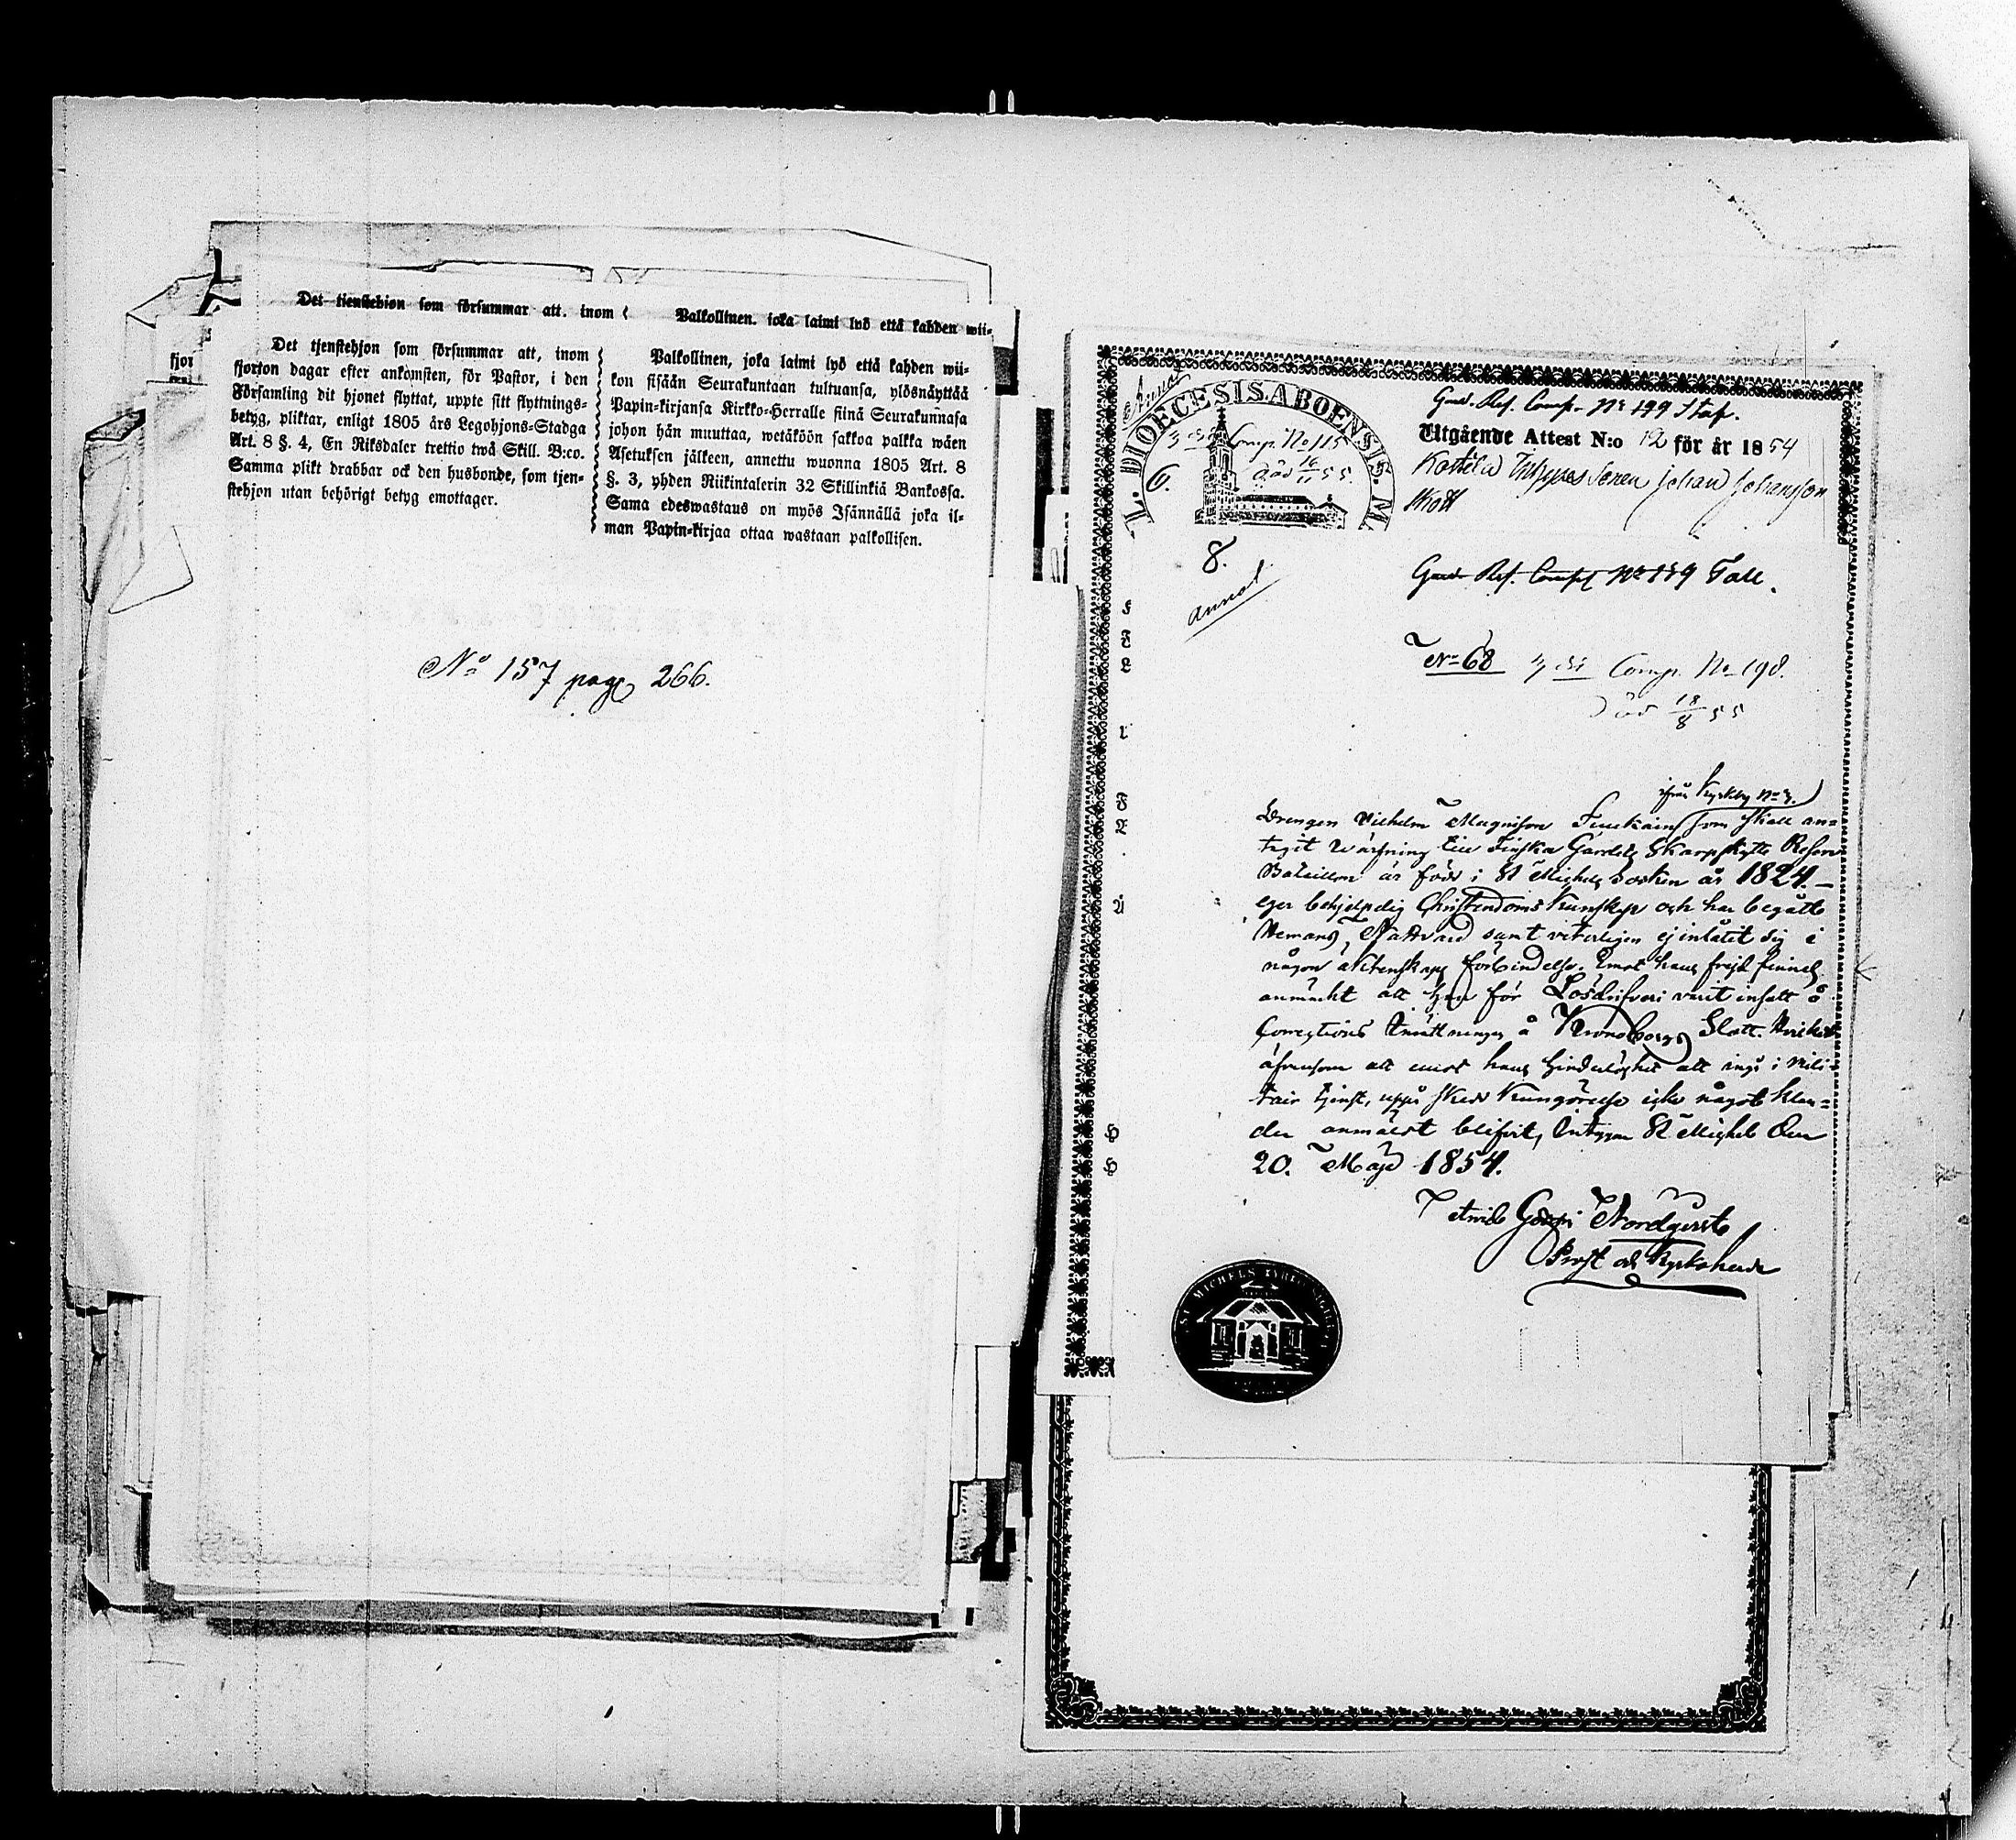 Det tjenstehjon som försummar att, inom
Palkollinen, joka laimi lyö että kahden wii-
fjor
Det tjenstehjon som försummar att, inom
fjorton dagar efter ankomsten, för Pastor, i den
Församling dit hjonet flyttat, uppte sitt flyttnings-
betyg, pliktar, enligt 1805 års Legohjons-Stadga
Art. 8 §. 4, En Riksdaler trettio twå Skill. B:co.
Samma plikt drabbar ock den husbonde, som tjen-
stehjon utan behörigt betyg emottager.
Palkollinen, joka laimi lyö että kahden wii-
kon sisään Seurakuntaan tultuansa, ylösnäyttää
Papin-kirjansa Kirkko-Herralle siinä Seurakunnasa
johon hän muuttaa, wetäköön sakkoa palkka wäen
Asetuksen jälkeen, annettu wuonna 1805 Art. 8
§. 3, yhden Riikintalerin 32 Skillinkiä Bankossa.
Sama edeswastaus on myös Isännällä joka il-
man Papin-kirjaa ottaa wastaan palkollisen.
No 157 page 266.
L. DIOECESIS. ABOENSIS. M
Comp. No 115
död 16/11 55.
6.
Gard. Res. Comp. No 199 Stap.
Utgående Attest N:o 12 för år 1854
Johan Johansson
8.
annot
Gard. Res. Comp No 159 Tall.
No 68 Comp. No 198.
död 18/8 55
ifrån Kyrkby No 3.
Drengen Vilhelm Magnisson som skall an=
tagit Wärfning till Finska Gardets Skarpskytte Reserv
Bataillon är född i St Michels Socken år 1824. –
eger behjelpelig Christendoms Kunskap och har begått
Hr: Nattvard samt veterligen ej inlåtit sig i
någon äktenskaps förbindelse. Emot hans frejd finnes
anmärkt att han för Lösdrifveri varit insatt å
Corrections Inrättningen å Kronoborgs Slott. Hvarjemte
äfvensom att emot hans hinderlöshet att ingå i Mili=
tair tjenst, uppå skedd Kungörelse icke något klan=
der anmält blifvit, Intygar St Michel den
20. Maji 1854.
Arvid Georg Nordqvist
Prost och Kyrkoherde